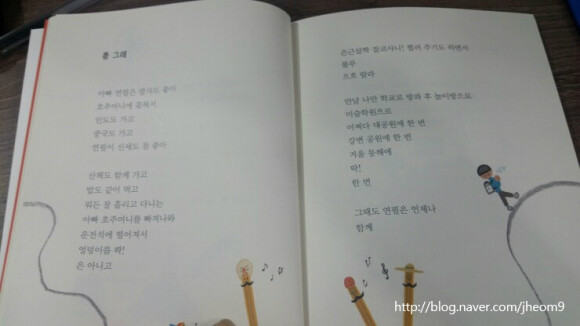 통 그래
아빠 연필은 팔자도 좋아
호주머니에 꽂혀서
인도도 가고
중국도 가고
연필이 신세도 참 좋아
산책도 함께 가고
밥도 같이 먹고
뭐든 잘 흘리고 다니는
아빠 호주머니를 빠져나와
운전석에 떨어져서
엉덩이를 콱!
은 아니고
은근살짝 찔리
주기도 하면서
블루
으흐 랄라
만날 나만 학교로 방과 후 놀이방으로
미술학원으로
어쩌다 대공원에 한 번
강변 공원에 한 번
겨울 동해에
딱!
한 번
그때도 연필은 언제나
함께
http://blog.naver.com/jheom9